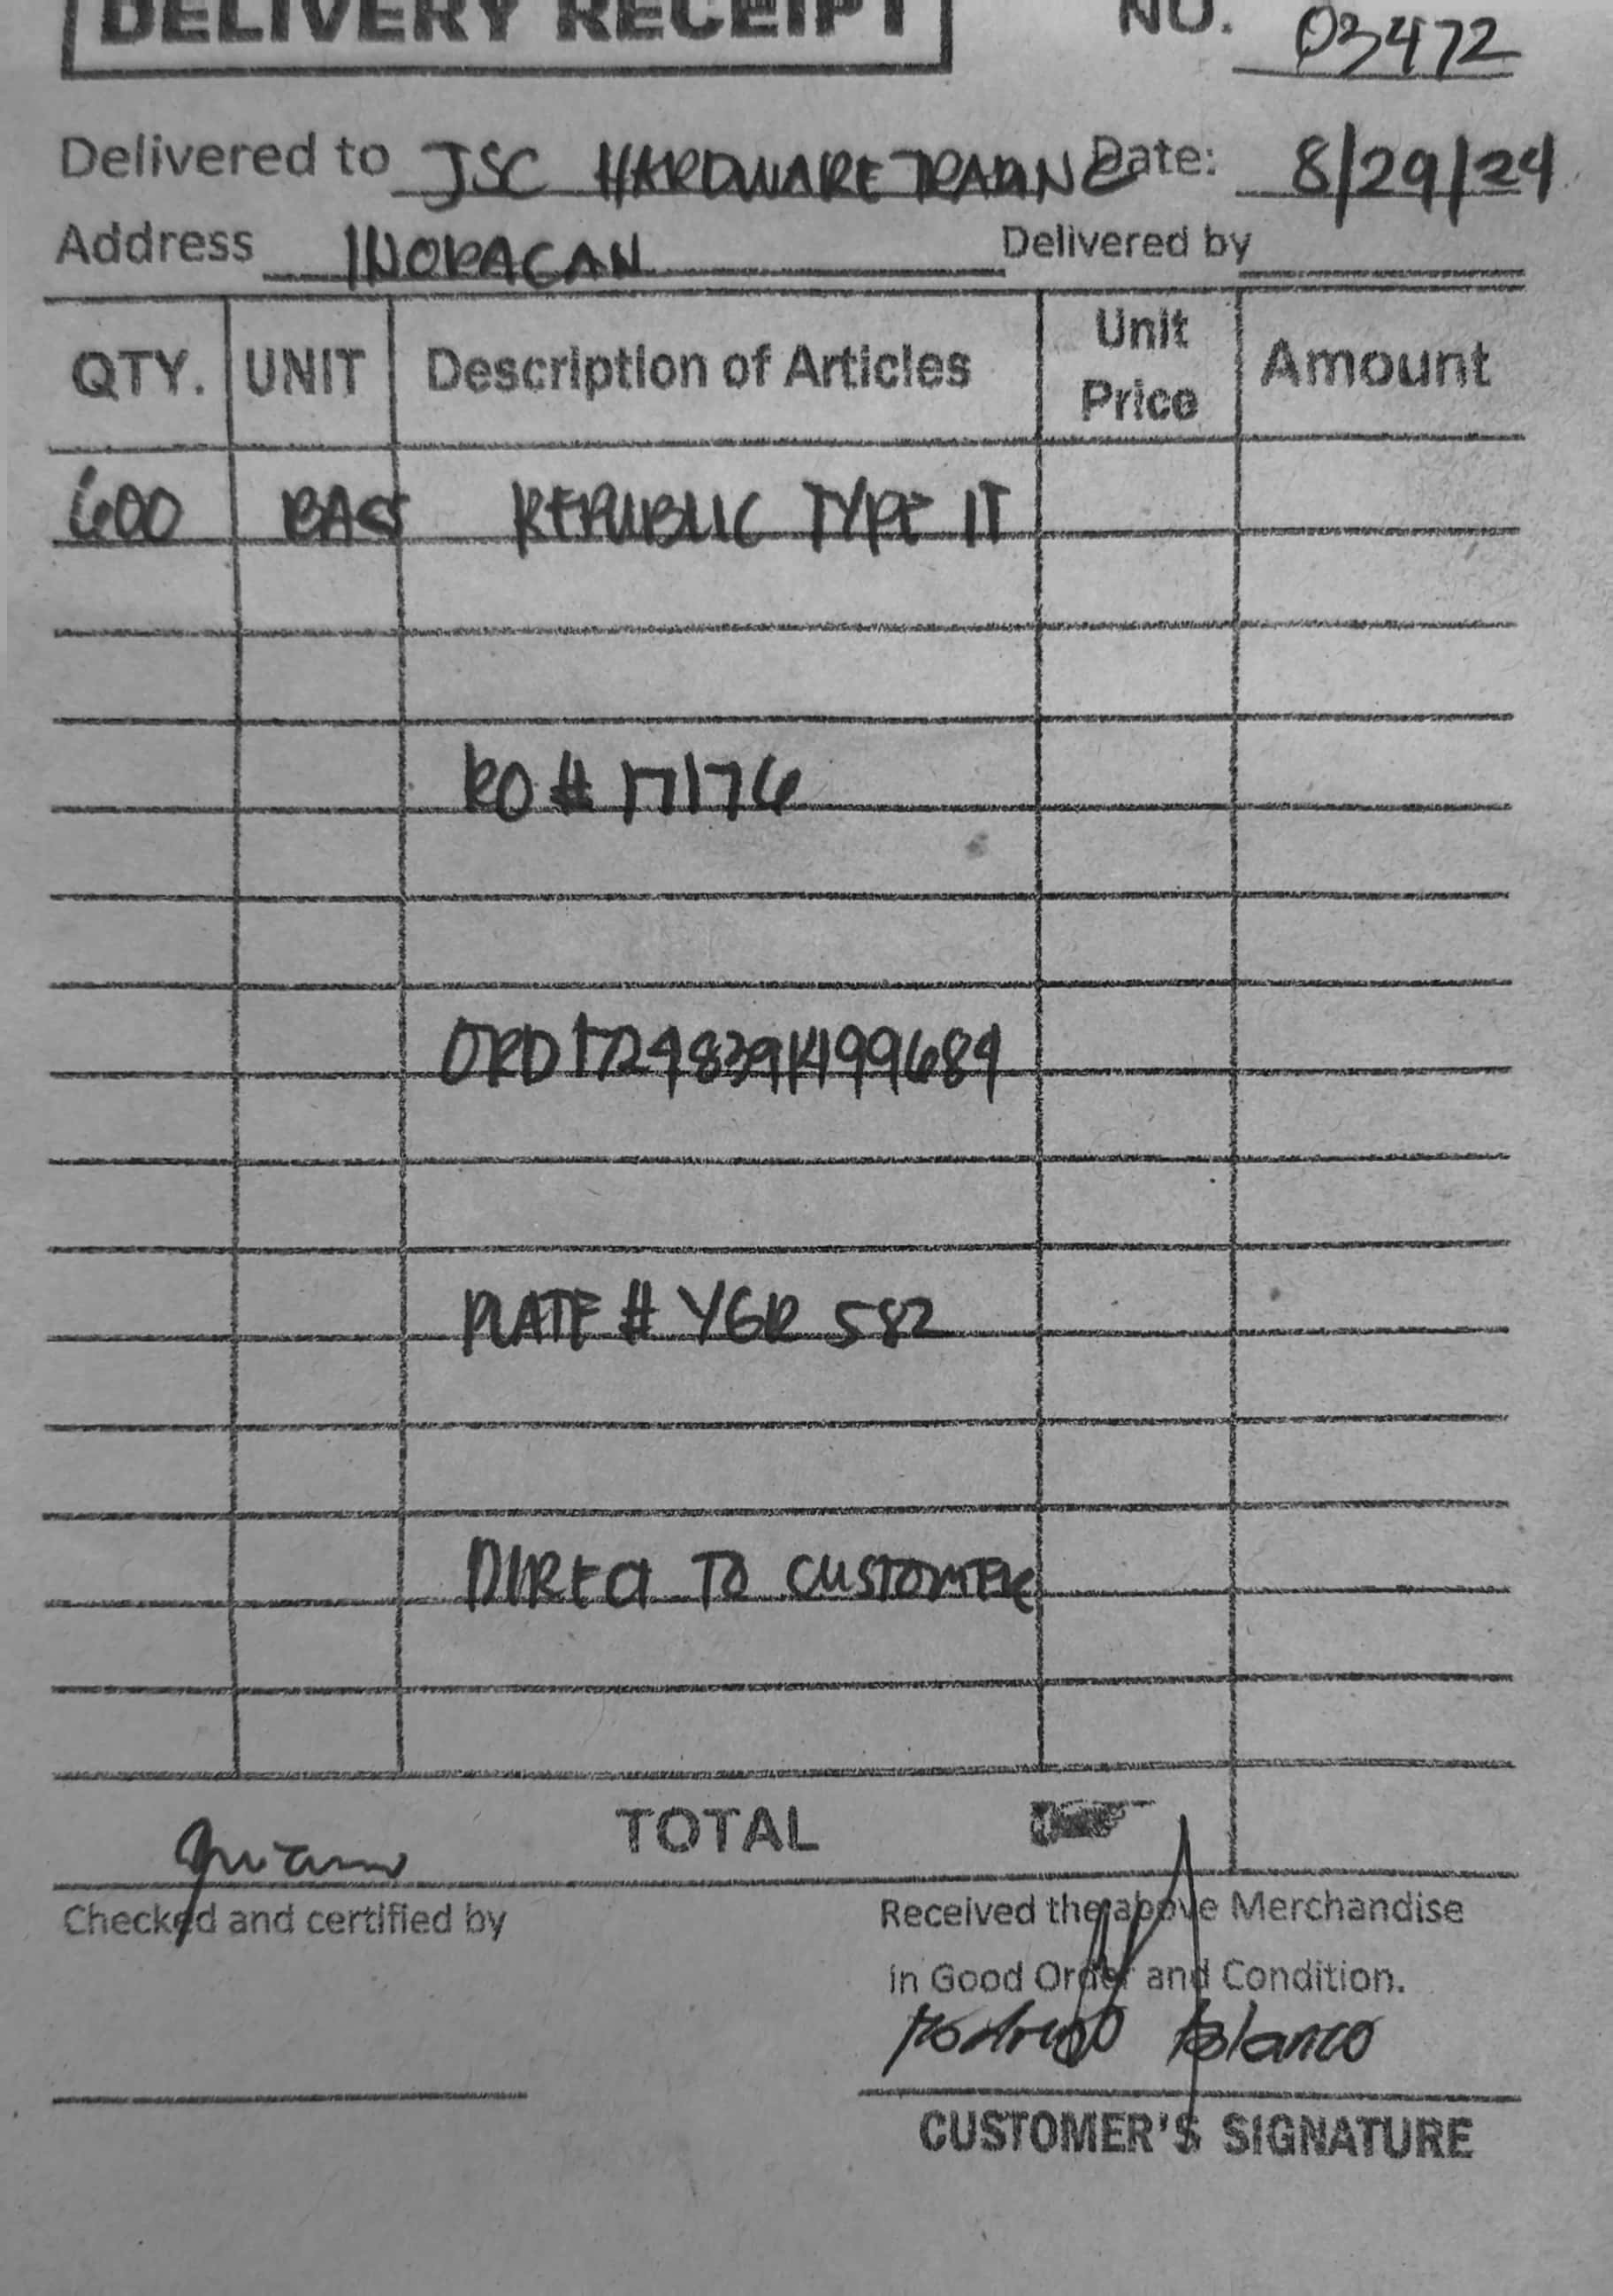 DELIVERY RECEIPT NO. 03472
Delivered to JSC HARDWARE TRADING Date: 8/29/24
Address INORACAN Delivered by
QTY. UNIT Description of Articles Unit Price Amount
600 BAGS REPUBLIC TYPE 1T
RO # 17176
ORD172483914199684
PLATE # YGR 582
DIRECT TO CUSTOMER
TOTAL
Checked and certified by
Received the above Merchandise
in Good Order and Condition.
Rodrigo Blanco
CUSTOMER'S SIGNATURE